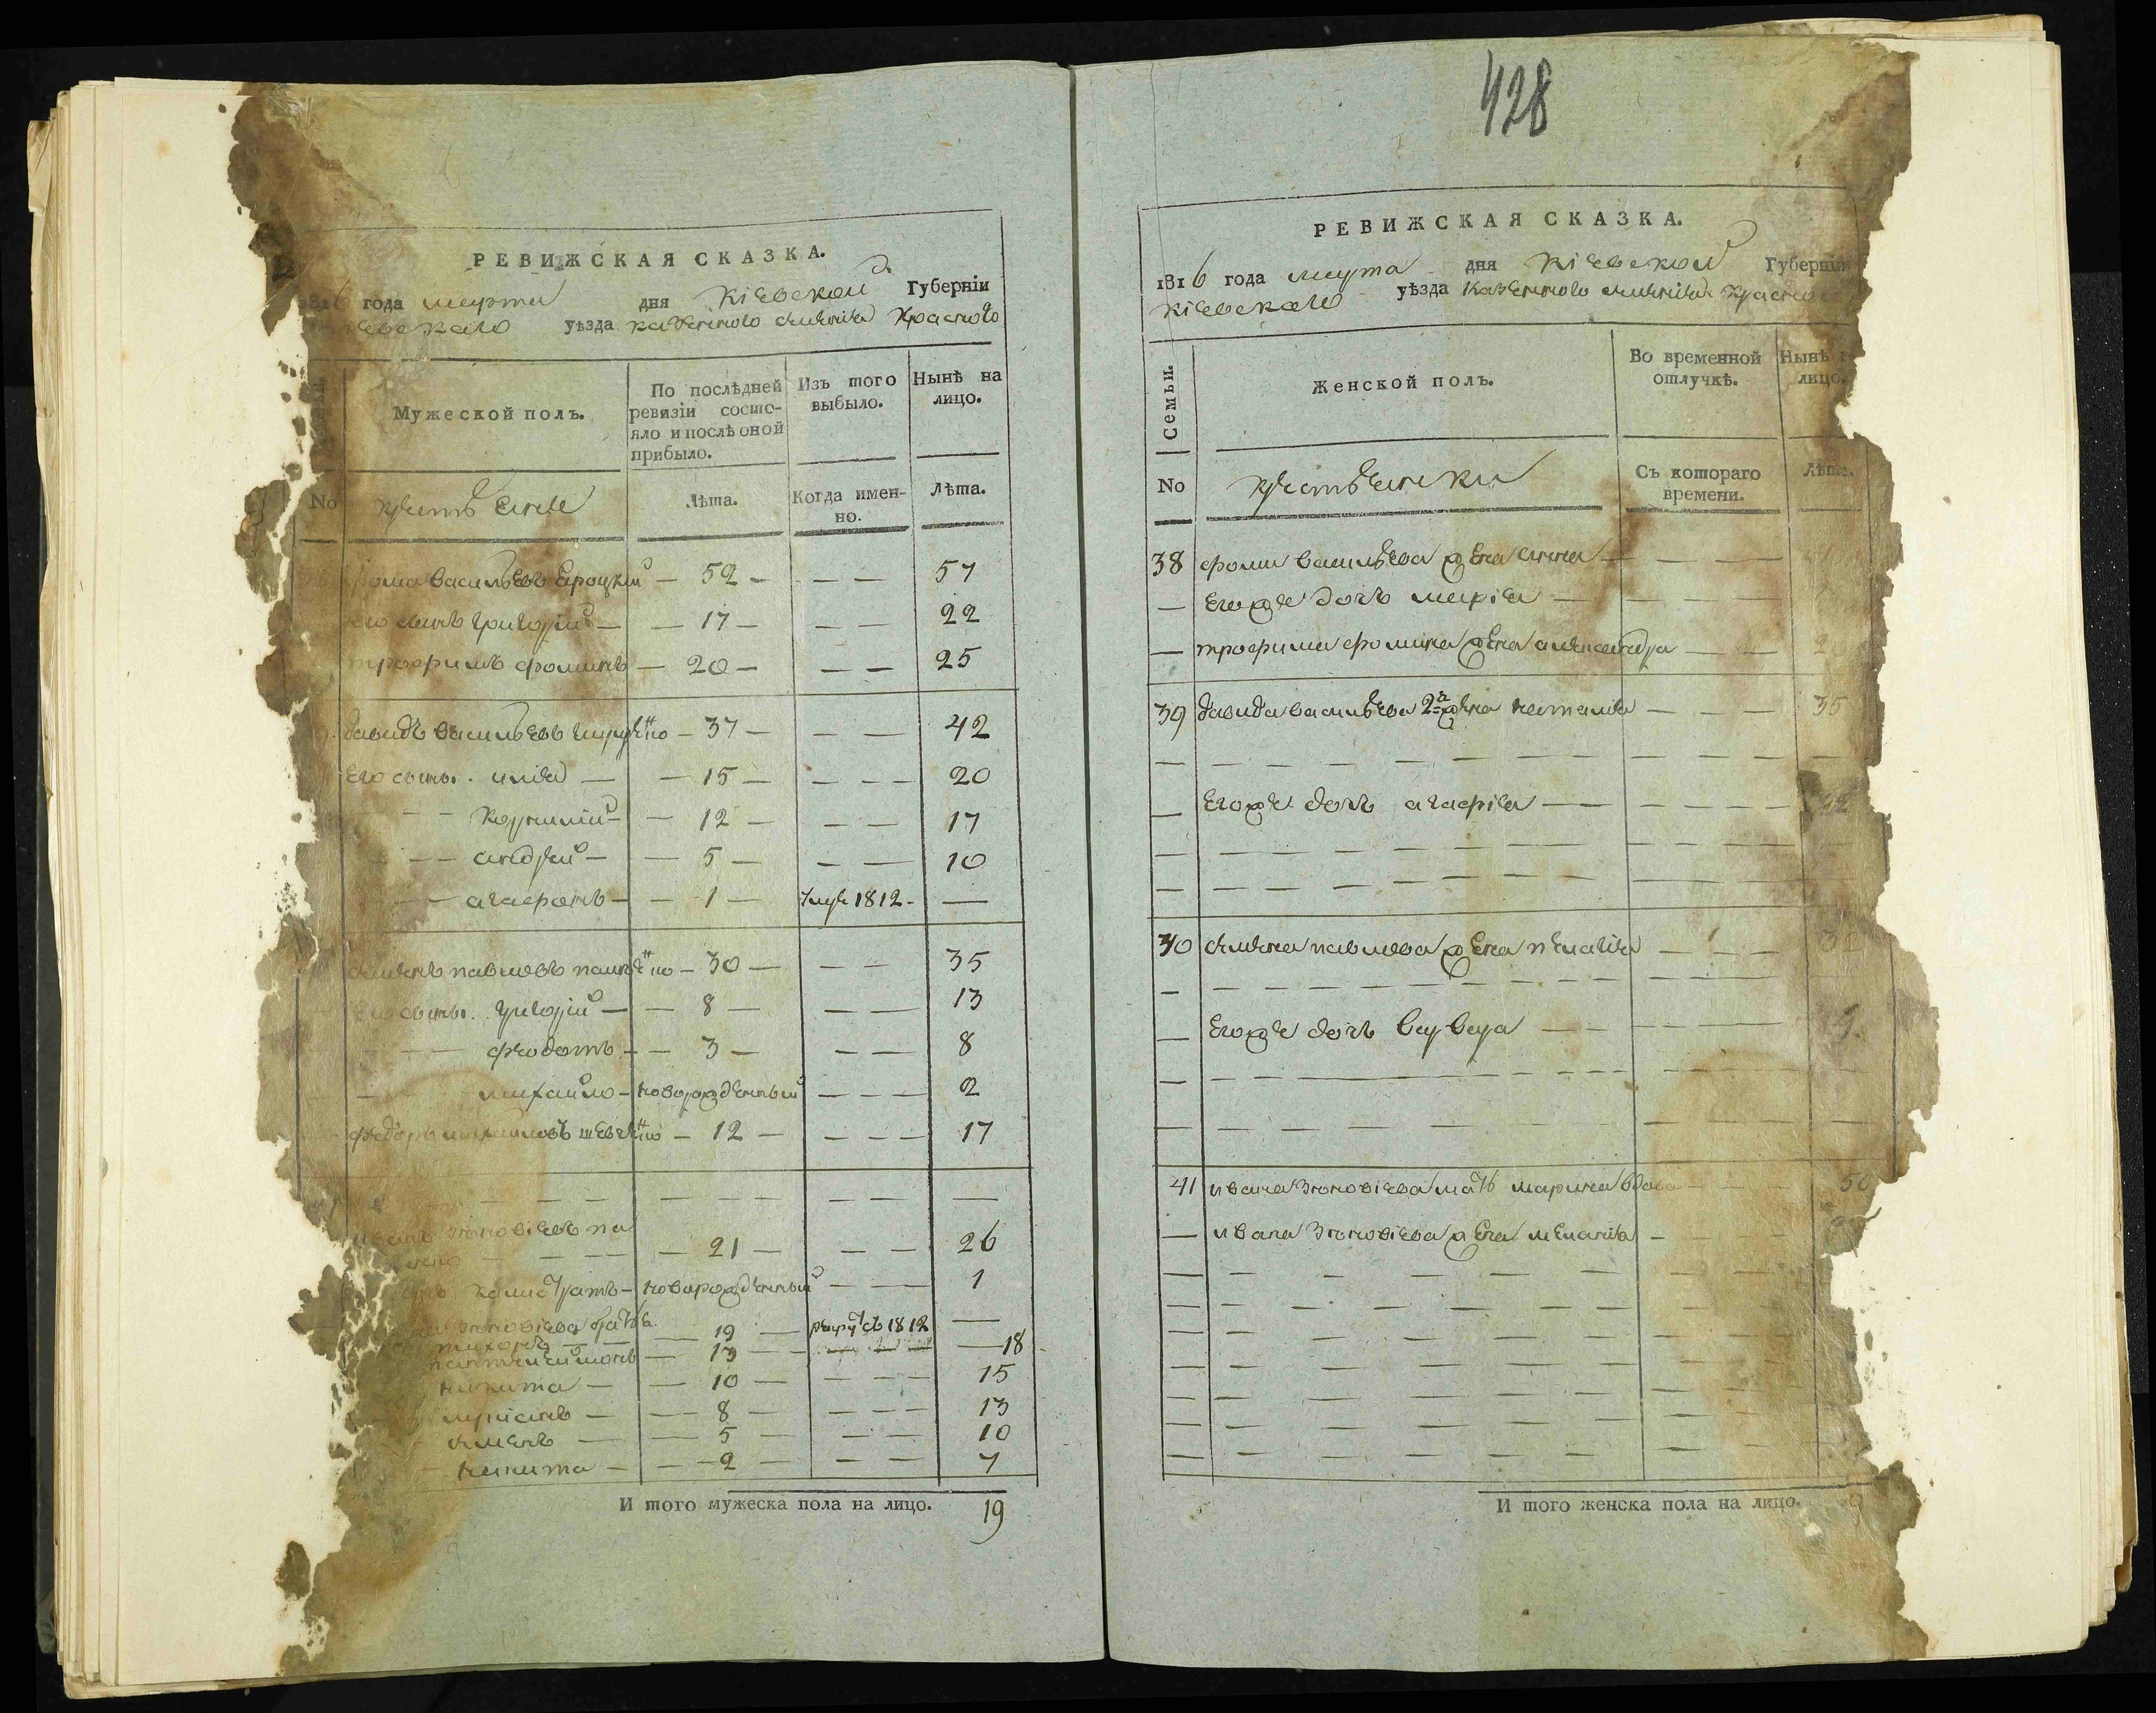 428
РЕВИЖСКАЯ СКАЗКА.
1816 года марта дня Кіевской Губерніи
Кіевскаго уѣзда казенного имѣнія Красного
Мужеской полъ.
По послѣдней ревизіи состояло и послѣ оной прибыло.
Изъ того выбыло.
Нынѣ на лицо.
No крестьяне
Лѣта.
Когда именно.
Лѣта.
фома васильевъ — 52 — — — 57
его сынъ григорій — — 17 — — — 22
трофимъ фоминъ — 20 — — — 25
давидъ васильевъ — 37 — — — 42
его сыны. илія — — 15 — — — 20
— — корнилій — — 12 — — — 17
— — андрей — — 5 — — — 10
— — агафонъ — — 1 — умре 1812 — —
семенъ павловъ — 30 — — — 35
его сыны. григорій — — 8 — — — 13
— — федотъ — — 3 — — — 8
— михайло — новорожденный — — — 2
федоръ михайловъ шевченко — 12 — — — — 17
— — — — — — — — —
иванъ зѣновіевъ
— — — — 21 — — — 26
калистратъ — новорожденный — — — 1
зѣновіева братья
тихонъ — — 19 — рекрутъ съ 1812 —
пантелеймонъ — 13 — — 18
никита — — 10 — — — — 15
лукіанъ — — 8 — — — — 13
семенъ — — 5 — — — 10
никита — — 2 — — — 7
И того мужеска пола на лицо. 19
РЕВИЖСКАЯ СКАЗКА.
1816 года марта дня Кіевской Губерніи
Кіевскаго уѣзда Казенного имѣнія Красного
Семьи.
Женской полъ.
Во временной отлучкѣ.
Нынѣ на лицо.
No крестьянки
Съ котораго времени.
Лѣта.
38 фомы васильева жена анна — — — —
— егоже дочь марія — — — —
— трофима фомина жена александра — — — 20
39 давида васильева 2я жена наталія — — — 35
— — — — — — — — —
— егоже дочь агафія — — — — — — 22
— — — — — — — — —
— — — — — — — — —
40 семена павлова жена пелагія — — — 32
— — — — — — — — —
— егоже дочь варвара — — — — — 9.
— — — — — — — — —
— — — — — — — — —
41 ивана зѣновіева мать марина вдова — — 50
— ивана зѣновіева жена меланія — — —
— — — — — — — — —
— — — — — — — — —
— — — — — — — — —
— — — — — — — — —
— — — — — — — — —
— — — — — — — — —
— — — — — — — — —
И того женска пола на лицо. 9